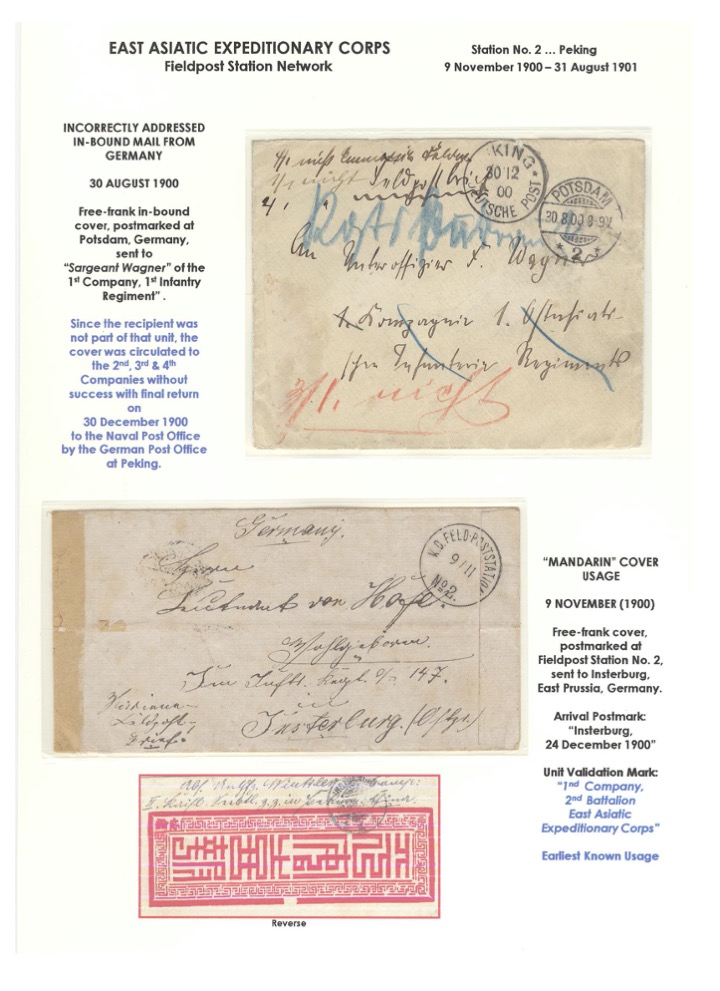 EAST ASIATIC EXPEDITIONARY CORPS
Fieldpost Station Network
Station No. 2 ... Peking
9 November 1900 – 31 August 1901
INCORRECTLY ADDRESSED
IN-BOUND MAIL FROM
GERMANY
30 AUGUST 1900
Free-frank in-bound
cover, postmarked at
Potsdam, Germany,
sent to
“Sargeant Wagner” of the
1st Company, 1st Infantry
Regiment” .
Since the recipient was
not part of that unit, the
cover was circulated to
the 2nd, 3rd & 4th
Companies without
success with final return
on
30 December 1900
to the Naval Post Office
by the German Post Office
at Peking.
KING
30 12
00
DEUTSCHE POST
POTSDAM
30.8.00.8-9V.
* 2 *
An Unteroffizier F. Wagner
Kompagnie 1. Ostasiati-
schen Infanterie Regiments
3/1. nicht
Germany.
K.D. FELD-POSTSTATION
9/11
No 2.
Herrn
Leutnant von
Wohlgeboren.
Im Inftr. Regt. 147.
in
Insterburg. (Ostpr.)
“MANDARIN” COVER
USAGE
9 NOVEMBER (1900)
Free-frank cover,
postmarked at
Fieldpost Station No. 2,
sent to Insterburg,
East Prussia, Germany.
Arrival Postmark:
“Insterburg,
24 December 1900”
Unit Validation Mark:
“1nd Company,
2nd Battalion
East Asiatic
Expeditionary Corps”
Earliest Known Usage
Reverse